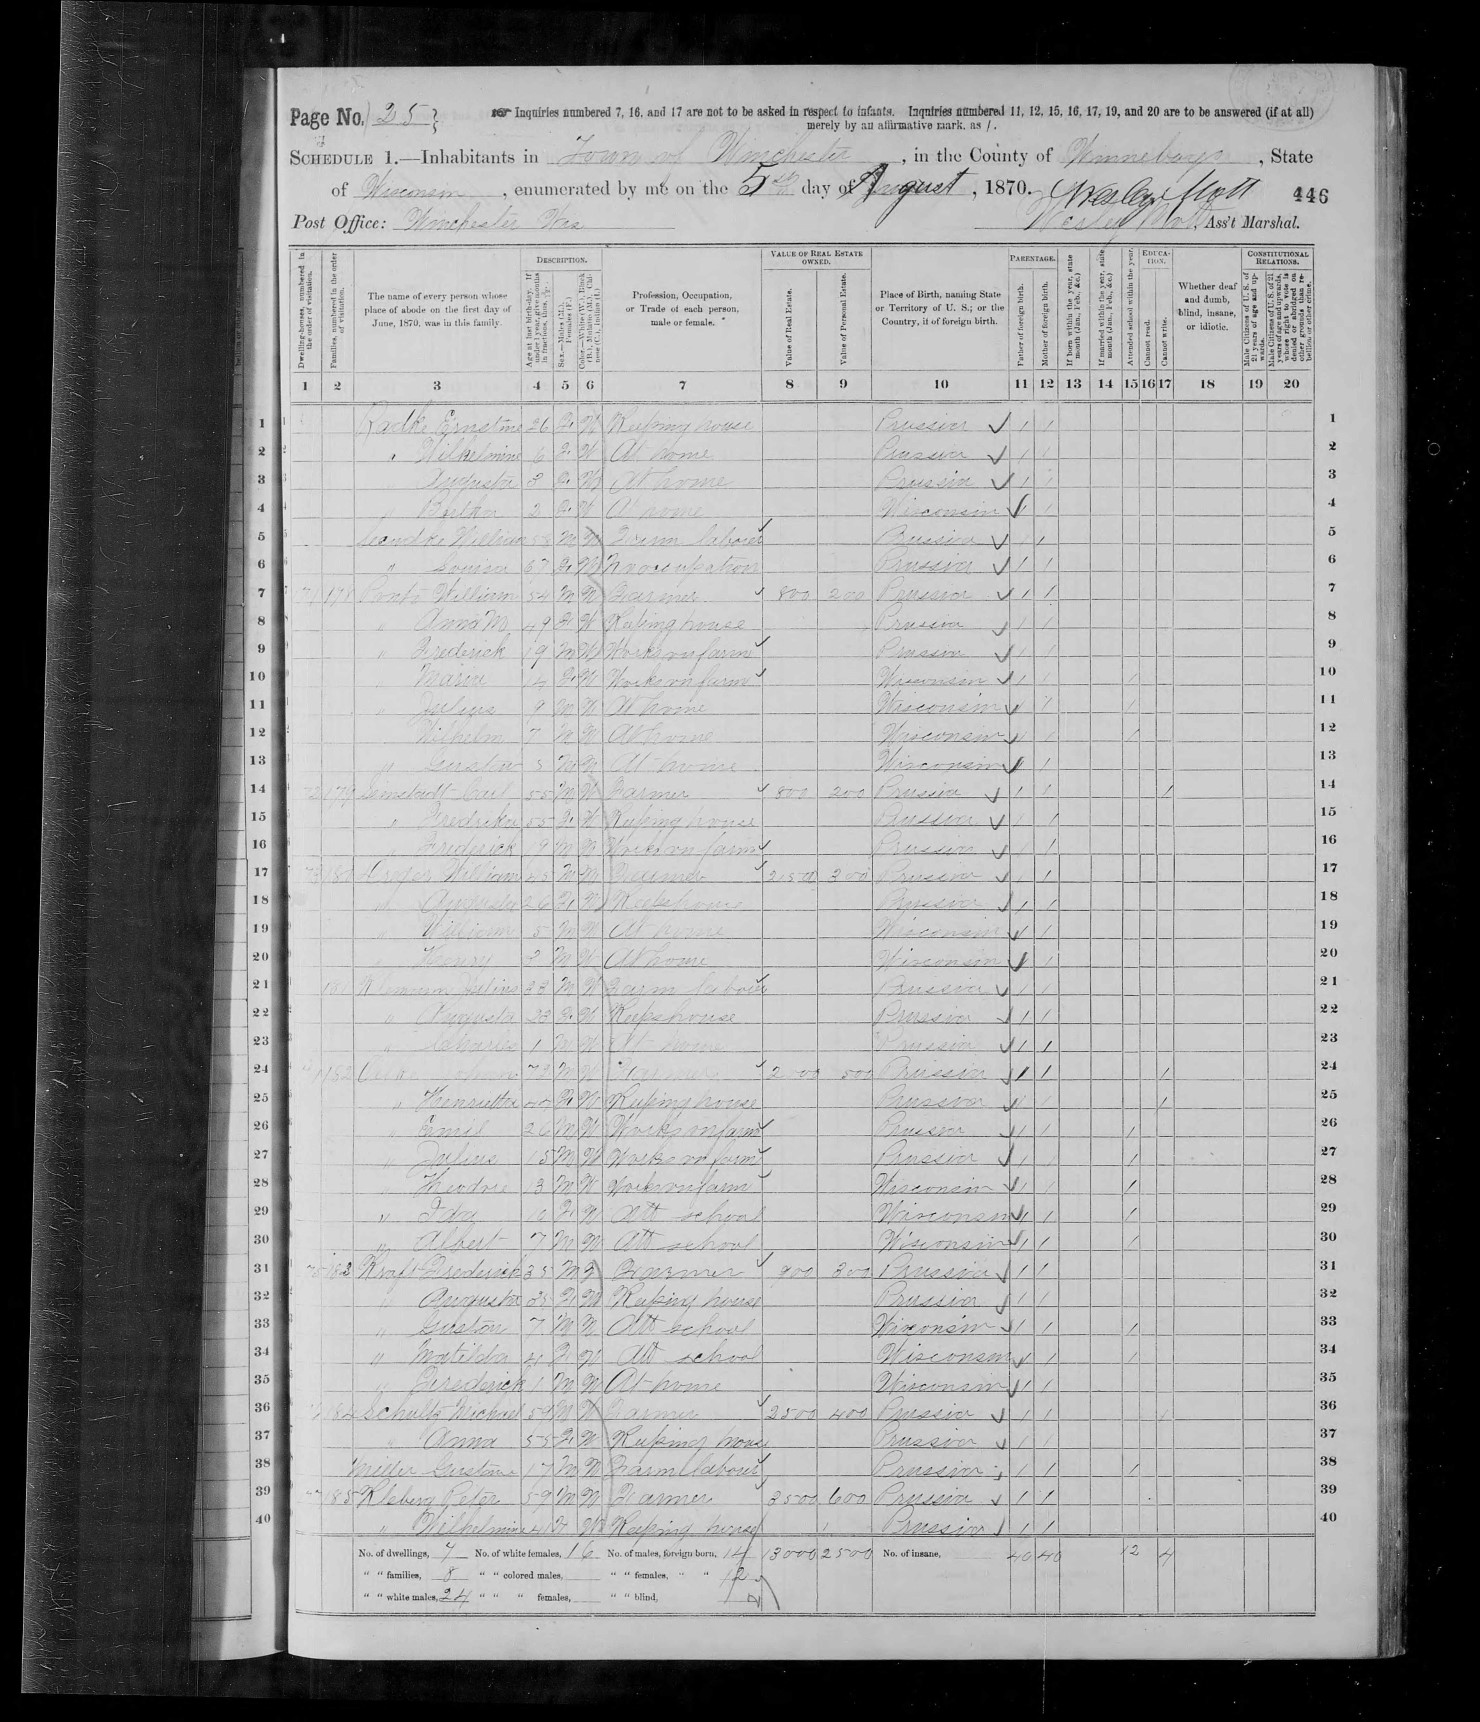 Page No. 25
Inquiries numbered 7, 16, and 17 are not to be asked in respect to infants. Inquiries numbered 11, 12, 15, 16, 17, 19, and 20 are to be answered (if at all)
merely by an affirmative mark, as /.
SCHEDULE 1.—Inhabitants in Town of Winchester, in the County of Winnebago, State
of Wisconsin, enumerated by me on the 5th day of August, 1870. Wesley Mott
446
Post Office: Winchester Wis Wesley Mott, Ass't Marshal.
Dwelling-houses, numbered in the order of visitation.
Families, numbered in the order of visitation.
The name of every person whose place of abode on the first day of June, 1870, was in this family.
DESCRIPTION.
Age at last birth-day. If under 1 year, give months in fractions, thus,
Sex.—Males (M.), Females (F.)
Color.—White (W.), Black (B.), Mulatto (M.), Chinese (C.), Indian (I.)
Profession, Occupation, or Trade of each person, male or female.
VALUE OF REAL ESTATE OWNED.
Value of Real Estate.
Value of Personal Estate.
Place of Birth, naming State or Territory of U. S.; or the Country, if of foreign birth.
PARENTAGE.
Father of foreign birth.
Mother of foreign birth.
If born within the year, state month (Jan., Feb., &c.)
If married within the year, state month (Jan., Feb., &c.)
Attended school within the year.
EDUCATION.
Cannot read.
Cannot write.
Whether deaf and dumb, blind, insane, or idiotic.
CONSTITUTIONAL RELATIONS.
Male Citizens of U. S. of 21 years of age and upwards.
Male Citizens of U. S. of 21 years of age and upwards, whose right to vote is denied or abridged on other grounds than rebellion or other crime.
1 2 3 4 5 6 7 8 9 10 11 12 13 14 15 16 17 18 19 20
1 Radke Ernstine 26 F W Keeping house Prussia / / 1
2 " Wilhelmine 6 F W At home Prussia / / 2
3 " Augusta 3 F W At home Prussia / / 3
4 " 2 F W At home Wisconsin / / 4
5 William M W Farm laborer Prussia / / 5
6 " Louisa 67 F W No occupation Prussia / / 6
7 178 William 54 M W Farmer 800 200 Prussia / / 7
8 " Anna M 49 F W Keeping house Prussia / / 8
9 " Frederick 19 M W Works on farm Prussia / / 9
10 " Maria 14 F W Works on farm Wisconsin / / / 10
11 " Julius 9 M W At home Wisconsin / / / 11
12 " Wilhelm 7 M W At home Wisconsin / / / 12
13 " Gustav 5 M W At home Wisconsin / / 13
14 179 Carl 55 M W Farmer 800 200 Prussia / / / 14
15 " Fredrika 55 F W Keeping house Prussia / / 15
16 " Frederick 19 M W Works on farm Prussia / / 16
17 180 William 45 M W Farmer 2500 300 Prussia / / 17
18 " Augusta 26 F W Keeps house Prussia / / 18
19 " William 5 M W At home Wisconsin / / 19
20 " Henry 3 M W At home Wisconsin / / 20
21 181 Julius 33 M W Farm laborer Prussia / / 21
22 " Augusta 23 F W Keeps house Prussia / / 22
23 " Charles 1 M W At home Prussia / / 23
24 182 M W Farmer 500 Prussia / / / 24
25 " Henrietta 47 F W Keeping house Prussia / / / 25
26 " Emil 26 M W Works on farm Prussia / / / 26
27 " Julius 15 M W Works on farm Prussia / / / 27
28 " Theodre 13 M W Works on farm Wisconsin / / / 28
29 " Ida 10 F W Att school Wisconsin / / / 29
30 " Albert 7 M W Att school Wisconsin / / / 30
31 183 Kraft Frederick 35 M Farmer 900 300 Prussia / / 31
32 " Augusta F W Keeping house Prussia / / 32
33 " Gustav 7 M W Att school Wisconsin / / / 33
34 " Matilda 4 F W Att school Wisconsin / / / 34
35 " Frederick 1 M W At home Wisconsin / / 35
36 184 Schultz Michael 59 M W Farmer 2500 400 Prussia / / / 36
37 " Anna 55 F W Keeping house Prussia / / 37
38 Miller Gustave 17 M W Farm labour Prussia / / / 38
39 185 Kleberg Peter 59 M W Farmer 3500 600 Prussia / / 39
40 " Wilhelmine 41 F W Keeping house Prussia / / 40
No. of dwellings, 7 No. of white females, 16 No. of males, foreign born, 14 13000 2500 No. of insane, 40 40 12 4
" " families, 8 " " colored males, " " females, " " 12
" " white males, 24 " " " females, " " blind,